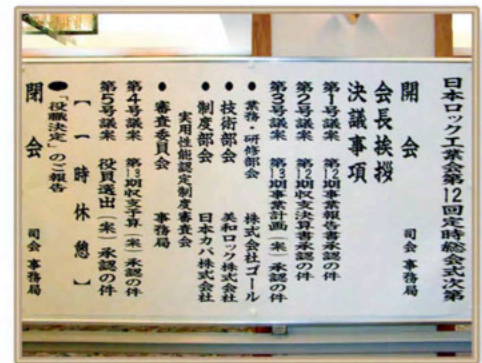 日本ロック工業会第12回定時総会式次第
開会 司会 事務局
会長挨拶
決議事項
第1号議案 第12期事業報告書承認の件
第2号議案 第12期収支決算書承認の件
第3号議案 第13期事業計画（案）承認の件
● 業務・研修部会 株式会社ゴール
● 技術部会 美和ロック株式会社
● 制度部会 日本カバ株式会社
実用性能認定制度審査会
● 審査委員会 事務局
第4号議案 第13期収支予算（案）承認の件
第5号議案 役員選出（案）承認の件
【一時休憩】
●「役職決定」のご報告
閉会 司会 事務局